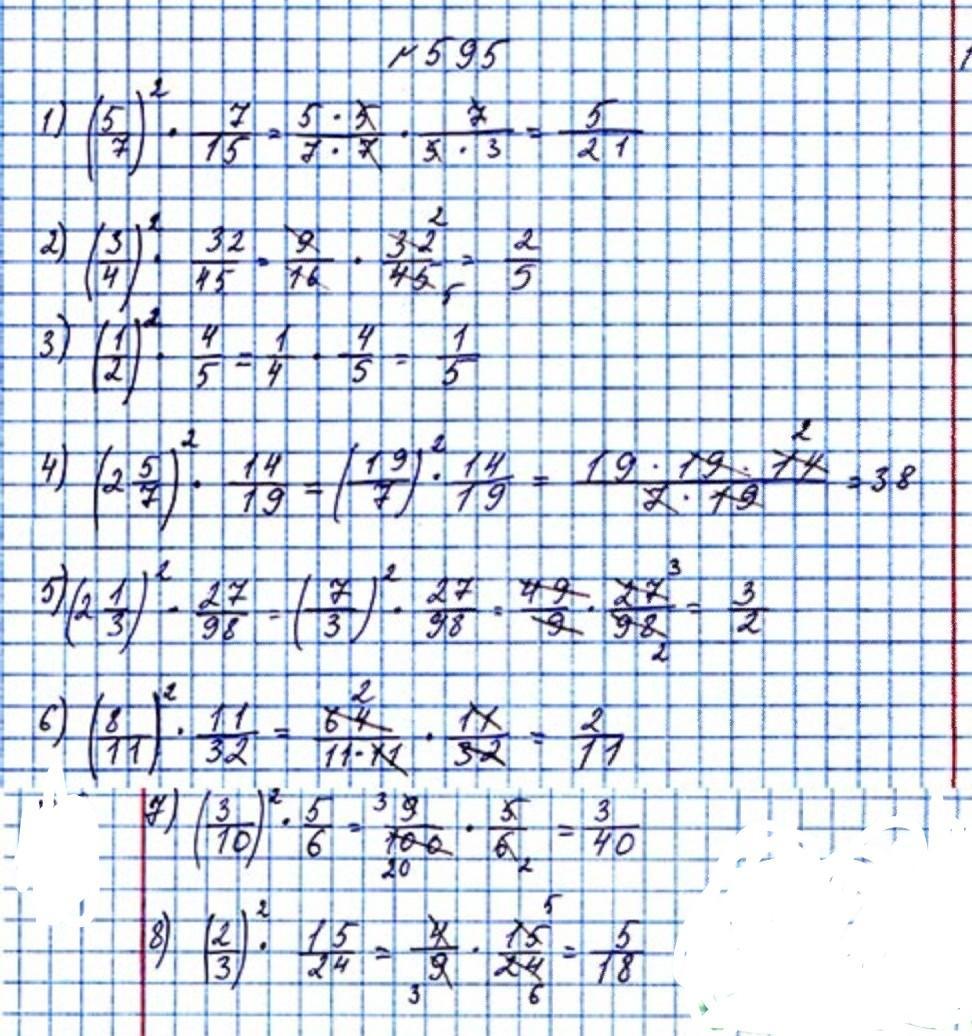 №595
1) (5/7)² · 7/15 = 5·5/7·7 · 7/5·3 = 5/21
2) (3/4)² · 32/45 = 9/16 · 32/45 2 5 = 2/5
3) (1/2)² · 4/5 = 1/4 · 4/5 = 1/5
4) (2 5/7)² · 14/19 = (19/7)² · 14/19 = 19·19·14/7·19 2 = 38
5) (2 1/3)² · 27/98 = (7/3)² · 27/98 = 49/9 · 27/98 3 2 = 3/2
6) (8/11)² · 11/32 = 64/11·11 2 · 11/32 = 2/11
7) (3/10)² · 5/6 = 3 9/100 20 · 5/6 2 = 3/40
8) (2/3)² · 15/24 = 4/9 3 · 15/24 5 6 = 5/18